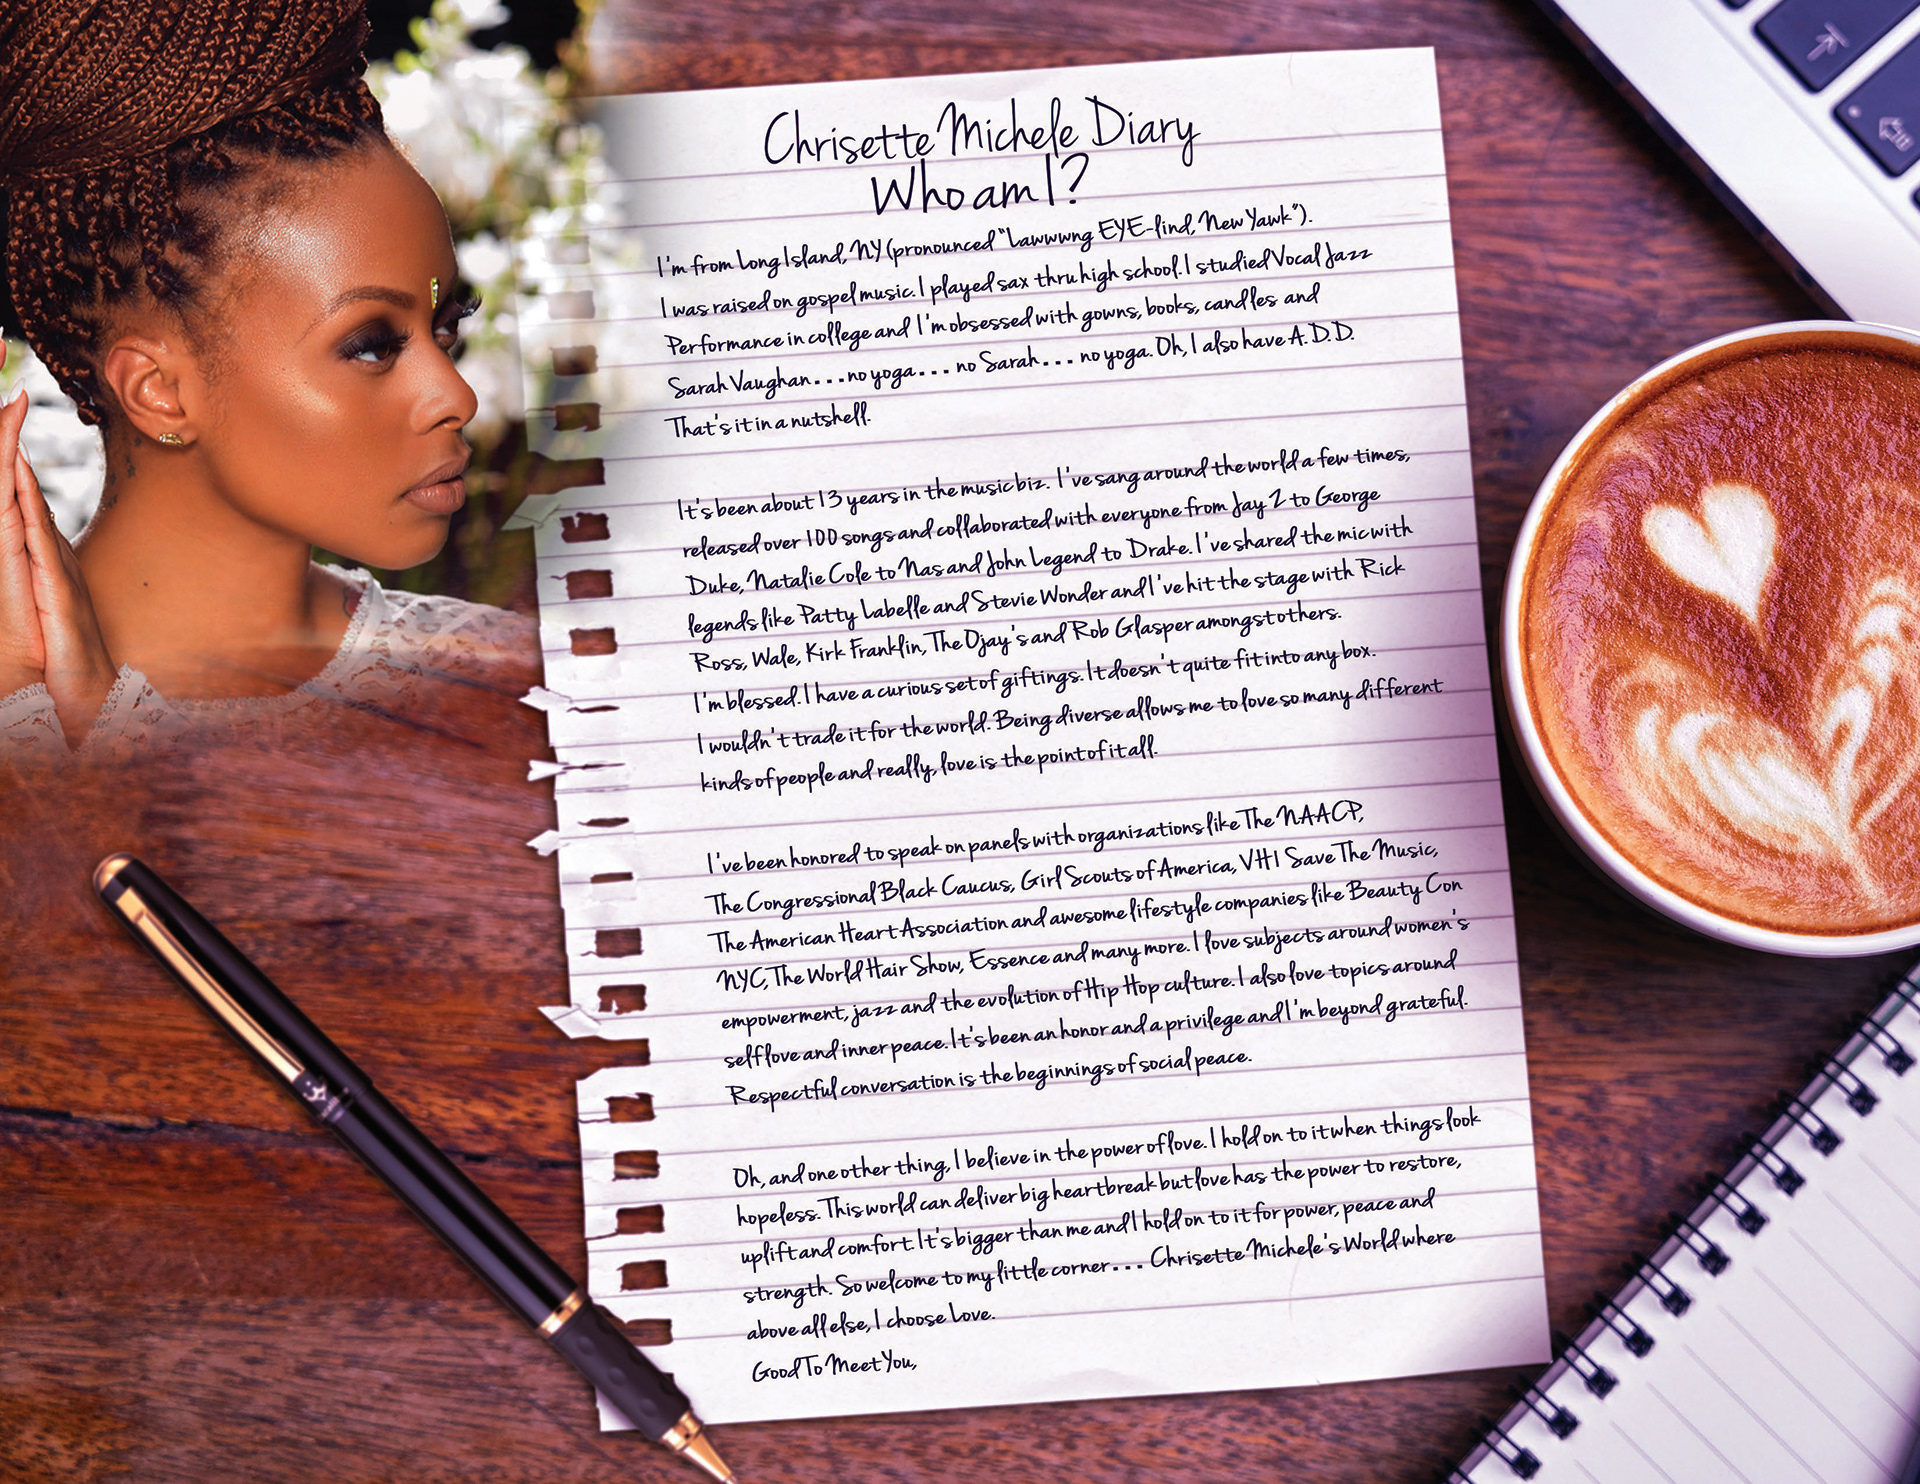 Chrisette Michele Diary
Who am I?
I'm from Long Island, NY (pronounced "Lawwwng EYE-lind, New Yawk").
I was raised on gospel music. I played sax thru high school. I studied Vocal Jazz
Performance in college and I'm obsessed with gowns, books, candles and
Sarah Vaughan...no yoga... no Sarah... no yoga. Oh, I also have A.D.D.
That's it in a nutshell.
It's been about 13 years in the music biz. I've sang around the world a few times,
released over 100 songs and collaborated with everyone from Jay Z to George
Duke, Natalie Cole to Nas and John Legend to Drake. I've shared the mic with
legends like Patty Labelle and Stevie Wonder and I've hit the stage with Rick
Ross, Wale, Kirk Franklin, The Ojay's and Rob Glasper amongst others.
I'm blessed. I have a curious set of giftings. It doesn't quite fit into any box.
I wouldn't trade it for the world. Being diverse allows me to love so many different
kinds of people and really, love is the point of it all.
I've been honored to speak on panels with organizations like The NAACP,
The Congressional Black Caucus, Girl Scouts of America, VH1 Save The Music,
The American Heart Association and awesome lifestyle companies like Beauty Con
NYC, The World Hair Show, Essence and many more. I love subjects around women's
empowerment, jazz and the evolution of Hip Hop culture. I also love topics around
self love and inner peace. It's been an honor and a privilege and I'm beyond grateful.
Respectful conversation is the beginnings of social peace.
Oh, and one other thing, I believe in the power of love. I hold on to it when things look
hopeless. This world can deliver big heartbreak but love has the power to restore,
uplift and comfort. It's bigger than me and I hold on to it for power, peace and
strength. So welcome to my little corner... Chrisette Michele's World where
above all else, I choose Love.
Good To Meet You,